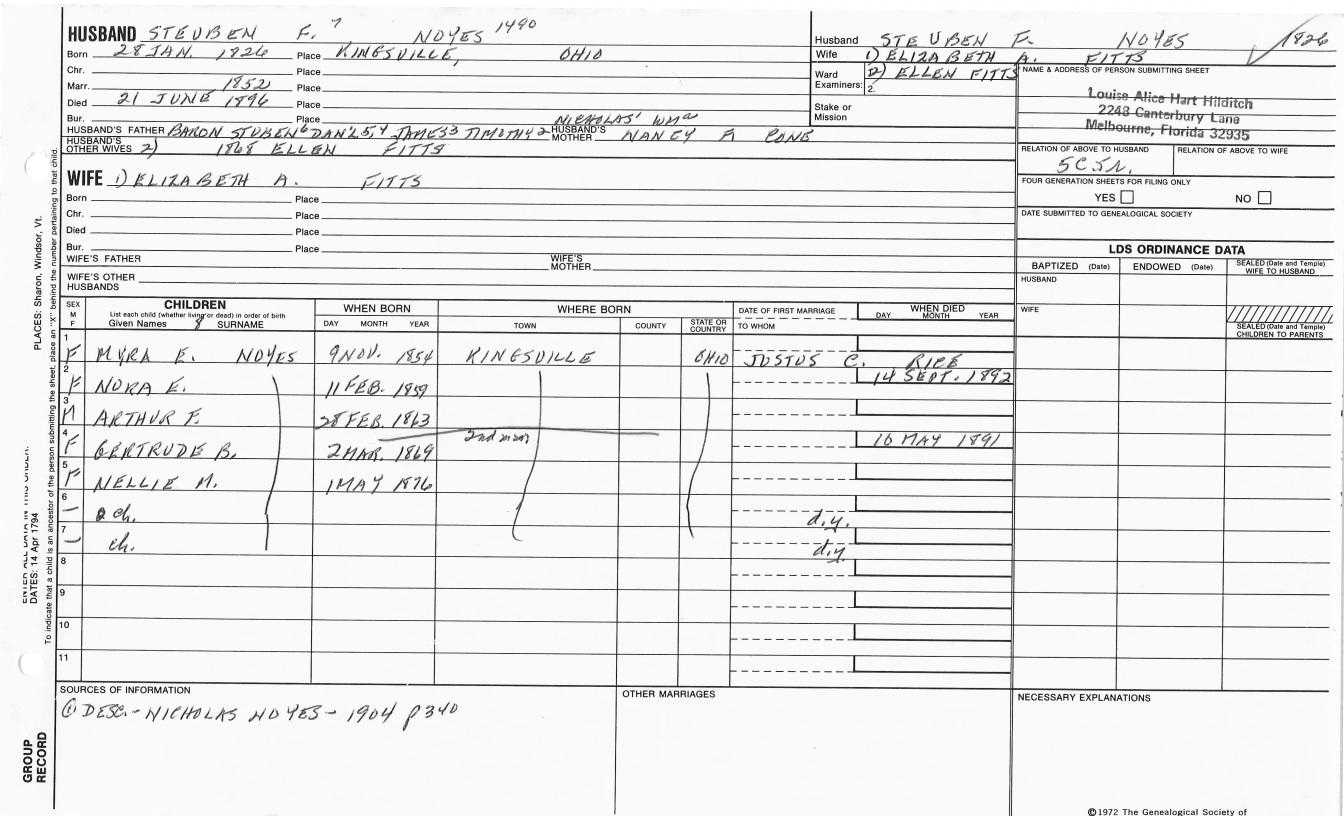 HUSBAND STEUBEN F. 7 NOYES 1490
Born 28 JAN. 1826 Place KINGSVILLE, OHIO
Chr. Place
Marr. 1852 Place
Died 21 JUNE 1896 Place
Bur. Place
NICHOLAS' WMa
HUSBAND'S FATHER BARON STUBEN6 DAN'L5,4 JAMES3 TIMOTHY2 HUSBAND'S MOTHER NANCY A CONE
HUSBAND'S OTHER WIVES 2) 1868 ELLEN FITTS
Husband STEUBEN F. NOYES 1826
Wife 1) ELIZABETH A. FITTS
Ward 2) ELLEN FITTS
Examiners: 2.
Stake or Mission
NAME & ADDRESS OF PERSON SUBMITTING SHEET
Louise Alice Hart Hilditch
2243 Canterbury Lane
Melbourne, Florida 32935
RELATION OF ABOVE TO HUSBAND RELATION OF ABOVE TO WIFE
5C.3R.
FOUR GENERATION SHEETS FOR FILING ONLY
YES NO
DATE SUBMITTED TO GENEALOGICAL SOCIETY
WIFE 1) ELIZABETH A. FITTS
Born Place
Chr. Place
Died Place
Bur. Place
WIFE'S FATHER WIFE'S MOTHER
WIFE'S OTHER HUSBANDS
LDS ORDINANCE DATA
BAPTIZED (Date) ENDOWED (Date) SEALED (Date and Temple) WIFE TO HUSBAND
HUSBAND
WIFE
SEALED (Date and Temple) CHILDREN TO PARENTS
SEX M F
CHILDREN
List each child (whether living or dead) in order of birth
Given Names 8 SURNAME
WHEN BORN
DAY MONTH YEAR
WHERE BORN
TOWN COUNTY STATE OR COUNTRY
DATE OF FIRST MARRIAGE
TO WHOM
WHEN DIED
DAY MONTH YEAR
1 F MYRA E. NOYES 9 NOV. 1854 KINGSVILLE OHIO JUSTUS C. RICE
2 F NORA E. 11 FEB. 1859 14 SEPT. 1892
3 M ARTHUR F. 28 FEB. 1863
2nd marr
4 F GERTRUDE B. 2 MAR. 1869 16 MAY 1891
5 F NELLIE M. 1 MAY 1876
6 – ch. d.y.
7 – ch. d.y.
8
9
10
11
SOURCES OF INFORMATION
① DESC.- NICHOLAS NOYES - 1904 p 340
OTHER MARRIAGES
NECESSARY EXPLANATIONS
©1972 The Genealogical Society of
PLACES: Sharon, Windsor, Vt.
ENTER ALL DATA IN THIS ORDER:
DATES: 14 Apr 1794
To indicate that a child is an ancestor of the person submitting the sheet, place an "X" behind the number pertaining to that child.
GROUP RECORD